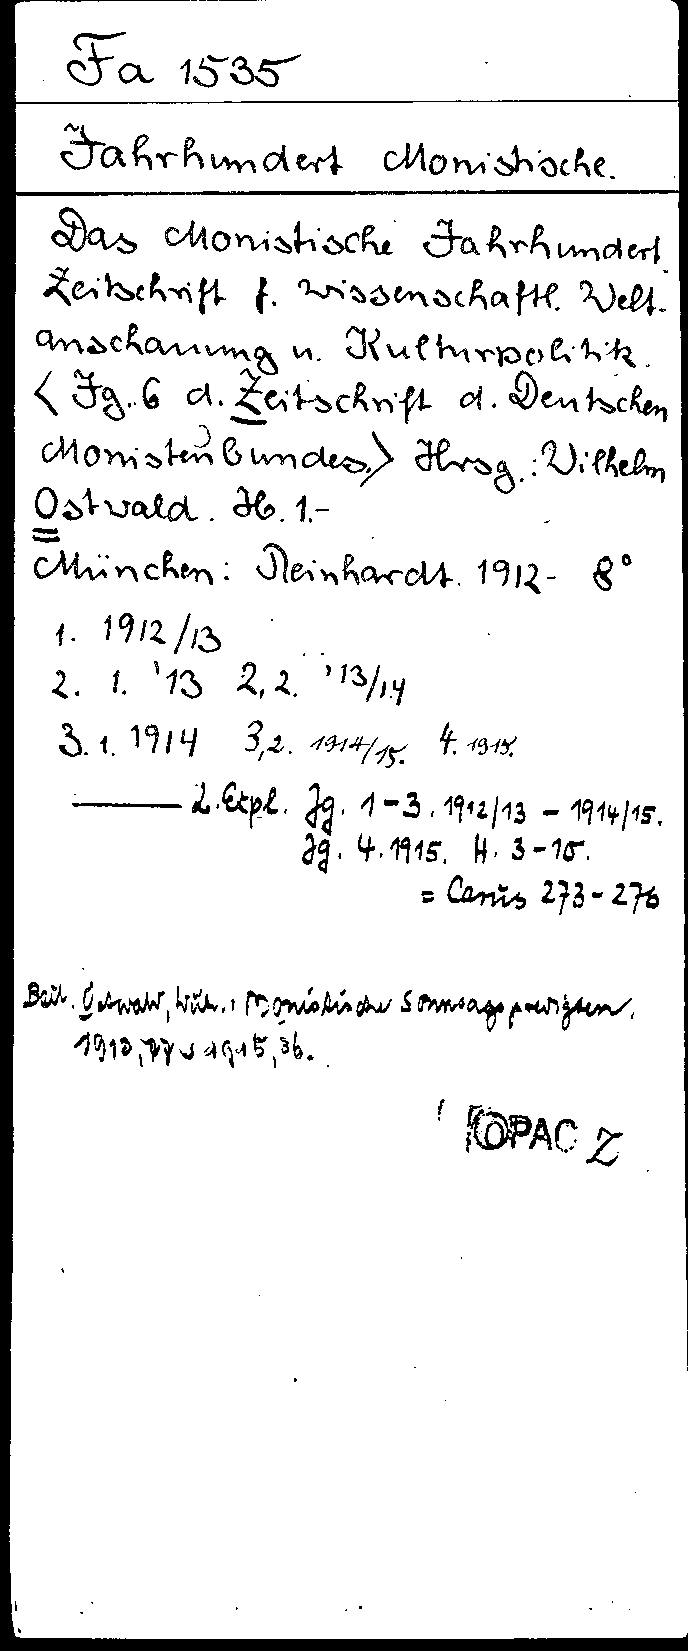 Fa 1535
Jahrhundert Monistische.
Das Monistische Jahrhundert.
Zeitschrift f. wissenschaftl. Welt-
anschauung u. Kulturpolitik.
< Jg. 6 d. Zeitschrift d. Deutschen
Monistenbundes.> Hrsg.: Wilhelm
Ostwald. H. 1.-
München: Reinhardt. 1912- 8°
1. 1912/13
2. 1. '13 2,2. '13/14
3. 1. 1914 3,2. 1914/15. 4. 1915.
2. Expl. Jg. 1-3. 1912/13 - 1914/15.
Jg. 4. 1915. H. 3-10.
= Carus 273-276
Beil. Ostwald, Wilh.: Monistische Sonntagspredigten.
1915, 36.
OPAC Z